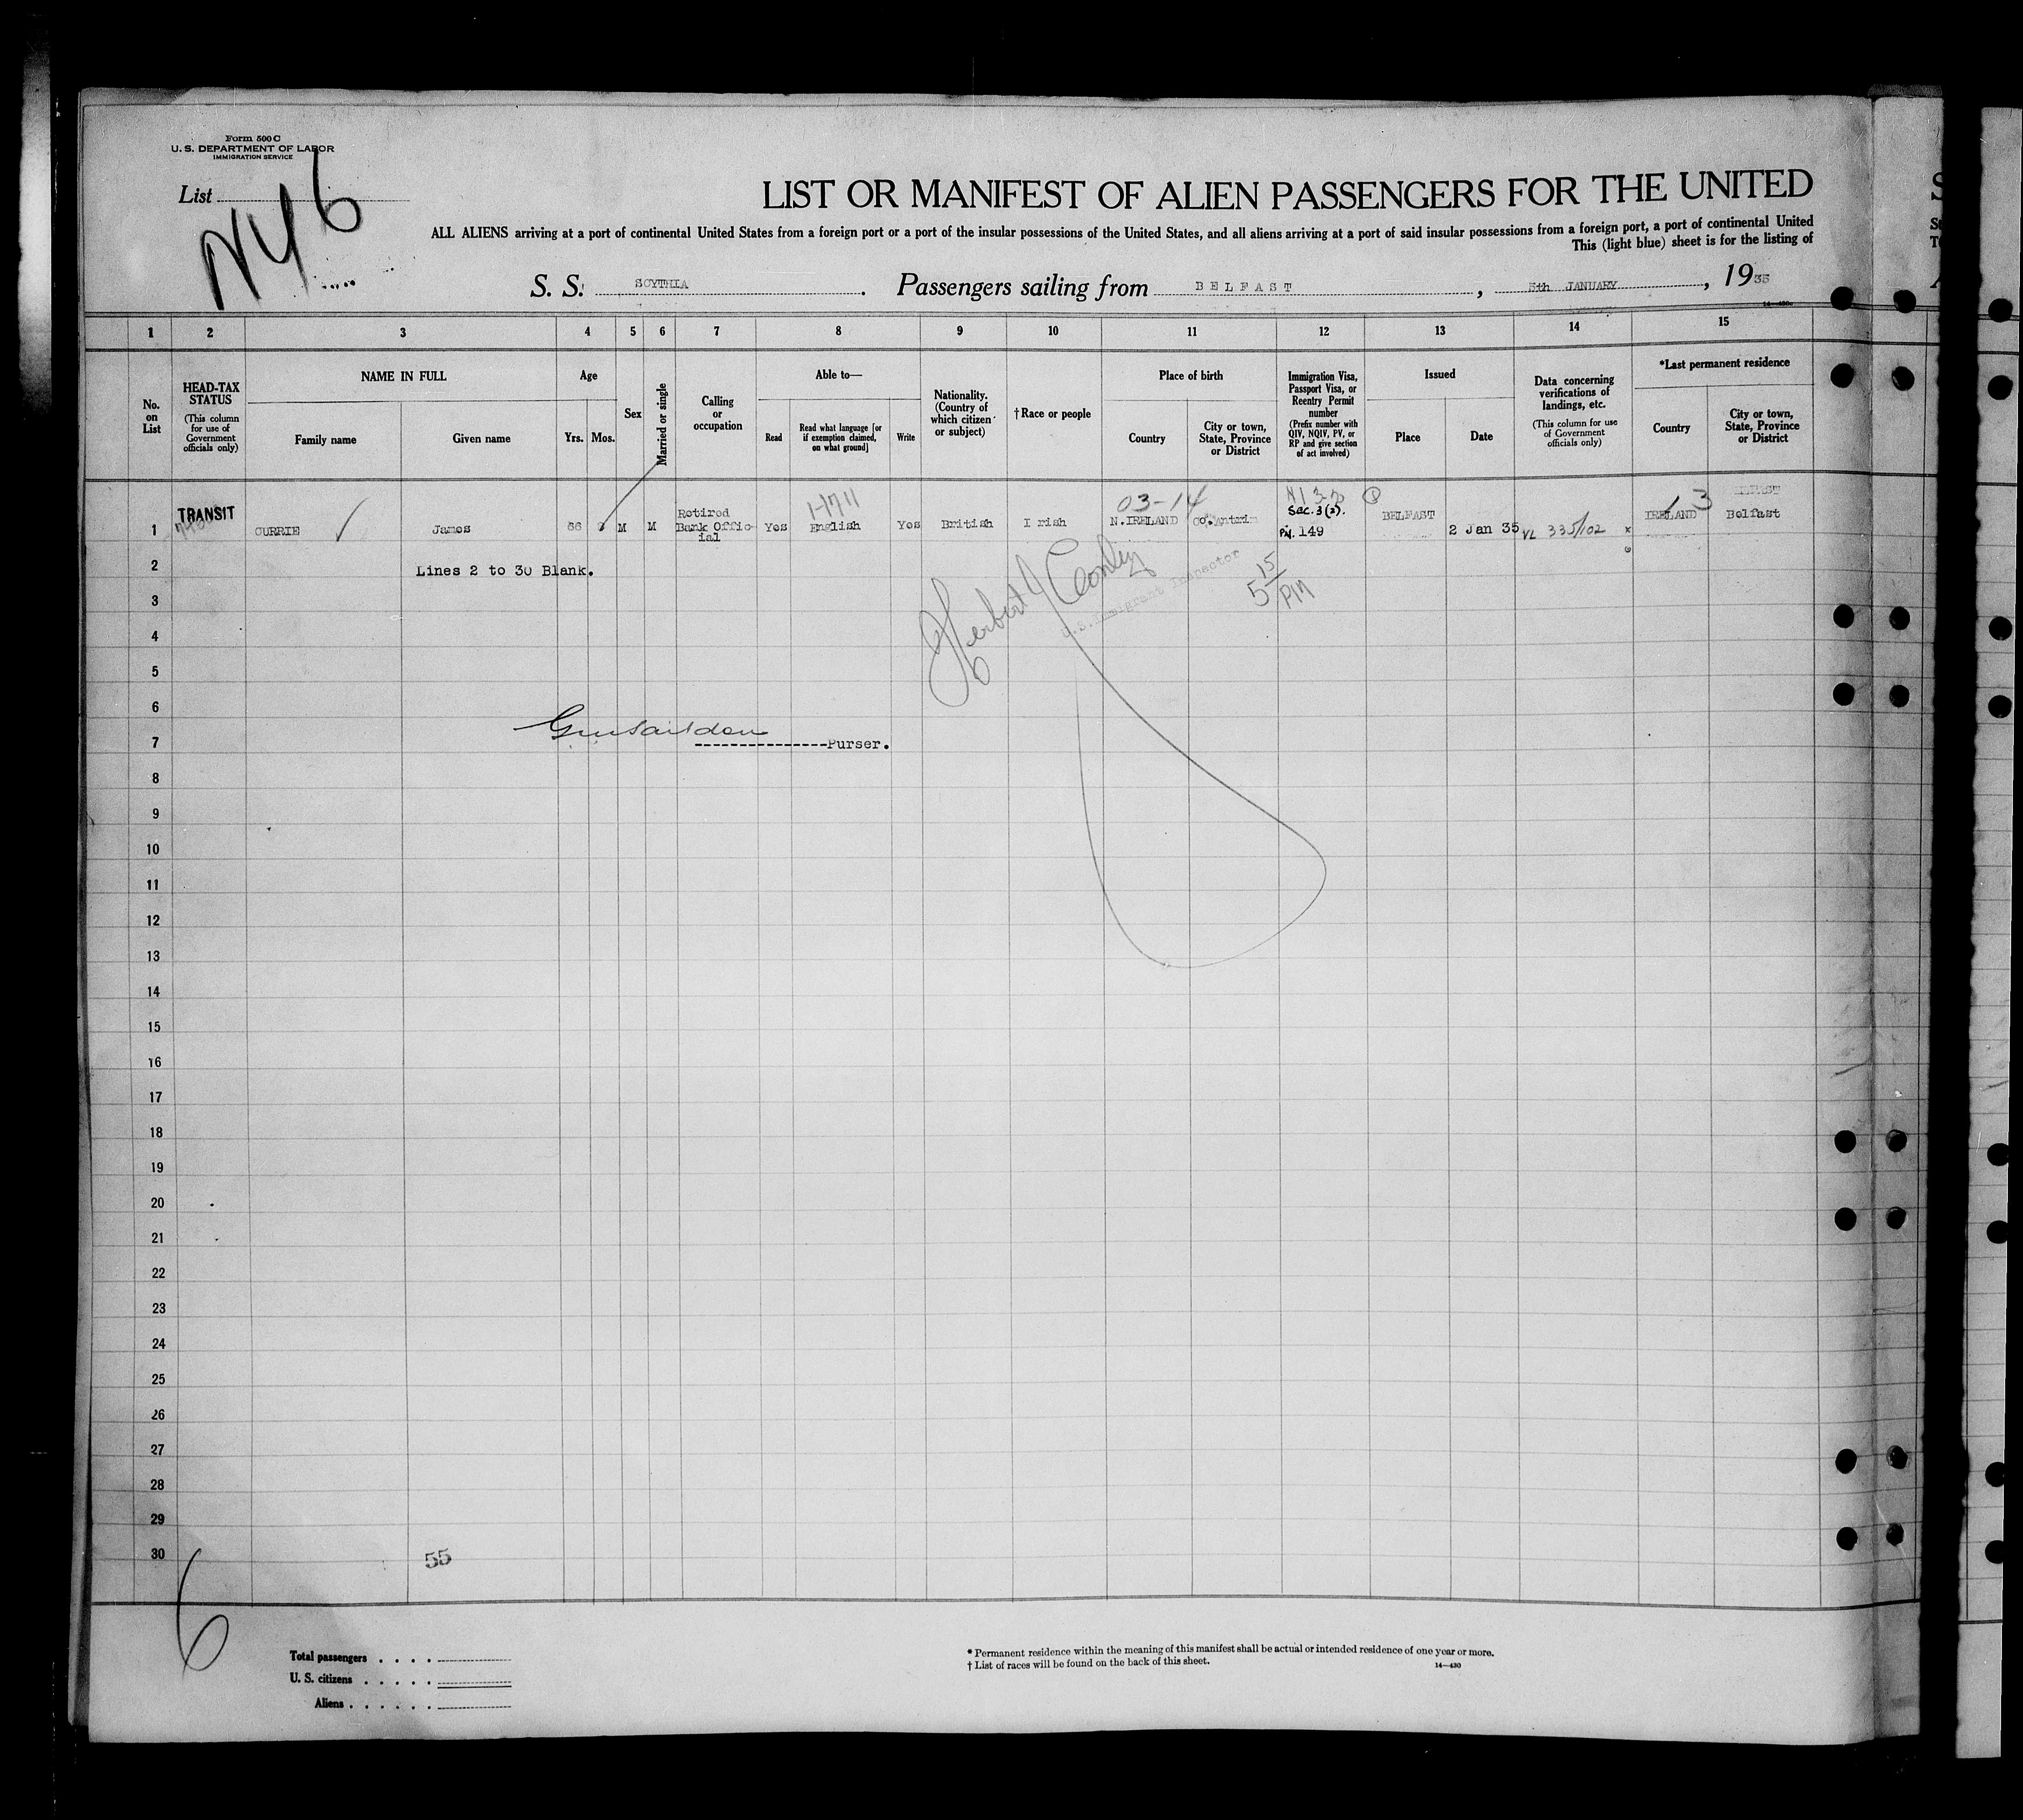 Form 500 C
U. S. DEPARTMENT OF LABOR
IMMIGRATION SERVICE
List
NY 6
LIST OR MANIFEST OF ALIEN PASSENGERS FOR THE UNITED
ALL ALIENS arriving at a port of continental United States from a foreign port or a port of the insular possessions of the United States, and all aliens arriving at a port of said insular possessions from a foreign port, a port of continental United
This (light blue) sheet is for the listing of
S. S. SCYTHIA. Passengers sailing from BELFAST, 5th JANUARY, 1935
1 2 3 4 5 6 7 8 9 10 11 12 13 14 15
No. on List
HEAD-TAX STATUS
(This column for use of Government officials only)
NAME IN FULL
Family name
Given name
Age
Yrs. Mos.
Sex
Married or single
Calling or occupation
Able to—
Read
Read what language [or if exemption claimed, on what ground]
Write
Nationality. (Country of which citizen or subject)
†Race or people
Place of birth
Country
City or town, State, Province or District
Immigration Visa, Passport Visa, or Reentry Permit number
(Prefix number with QIV, NQIV, PV, or RP and give section of act involved)
Issued
Place
Date
Data concerning verifications of landings, etc.
(This column for use of Government officials only)
*Last permanent residence
Country
City or town, State, Province or District
03-14
TRANSIT
1 CURRIE James 66 M M Retired Bank Official Yes English Yes British I rish N.IRELAND Co. Antrim Sec. 3(2). PV. 149 BELFAST 2 Jan 35 VL 335/102 IRELAND Belfast
2 Lines 2 to 30 Blank.
Herbert J Conley
U.S. Immigrant Inspector
5 15 PM
3
4
5
6
7 Purser.
8
9
10
11
12
13
14
15
16
17
18
19
20
21
22
23
24
25
26
27
28
29
30
55
6
Total passengers
U. S. citizens
Aliens
* Permanent residence within the meaning of this manifest shall be actual or intended residence of one year or more.
† List of races will be found on the back of this sheet.
14—430